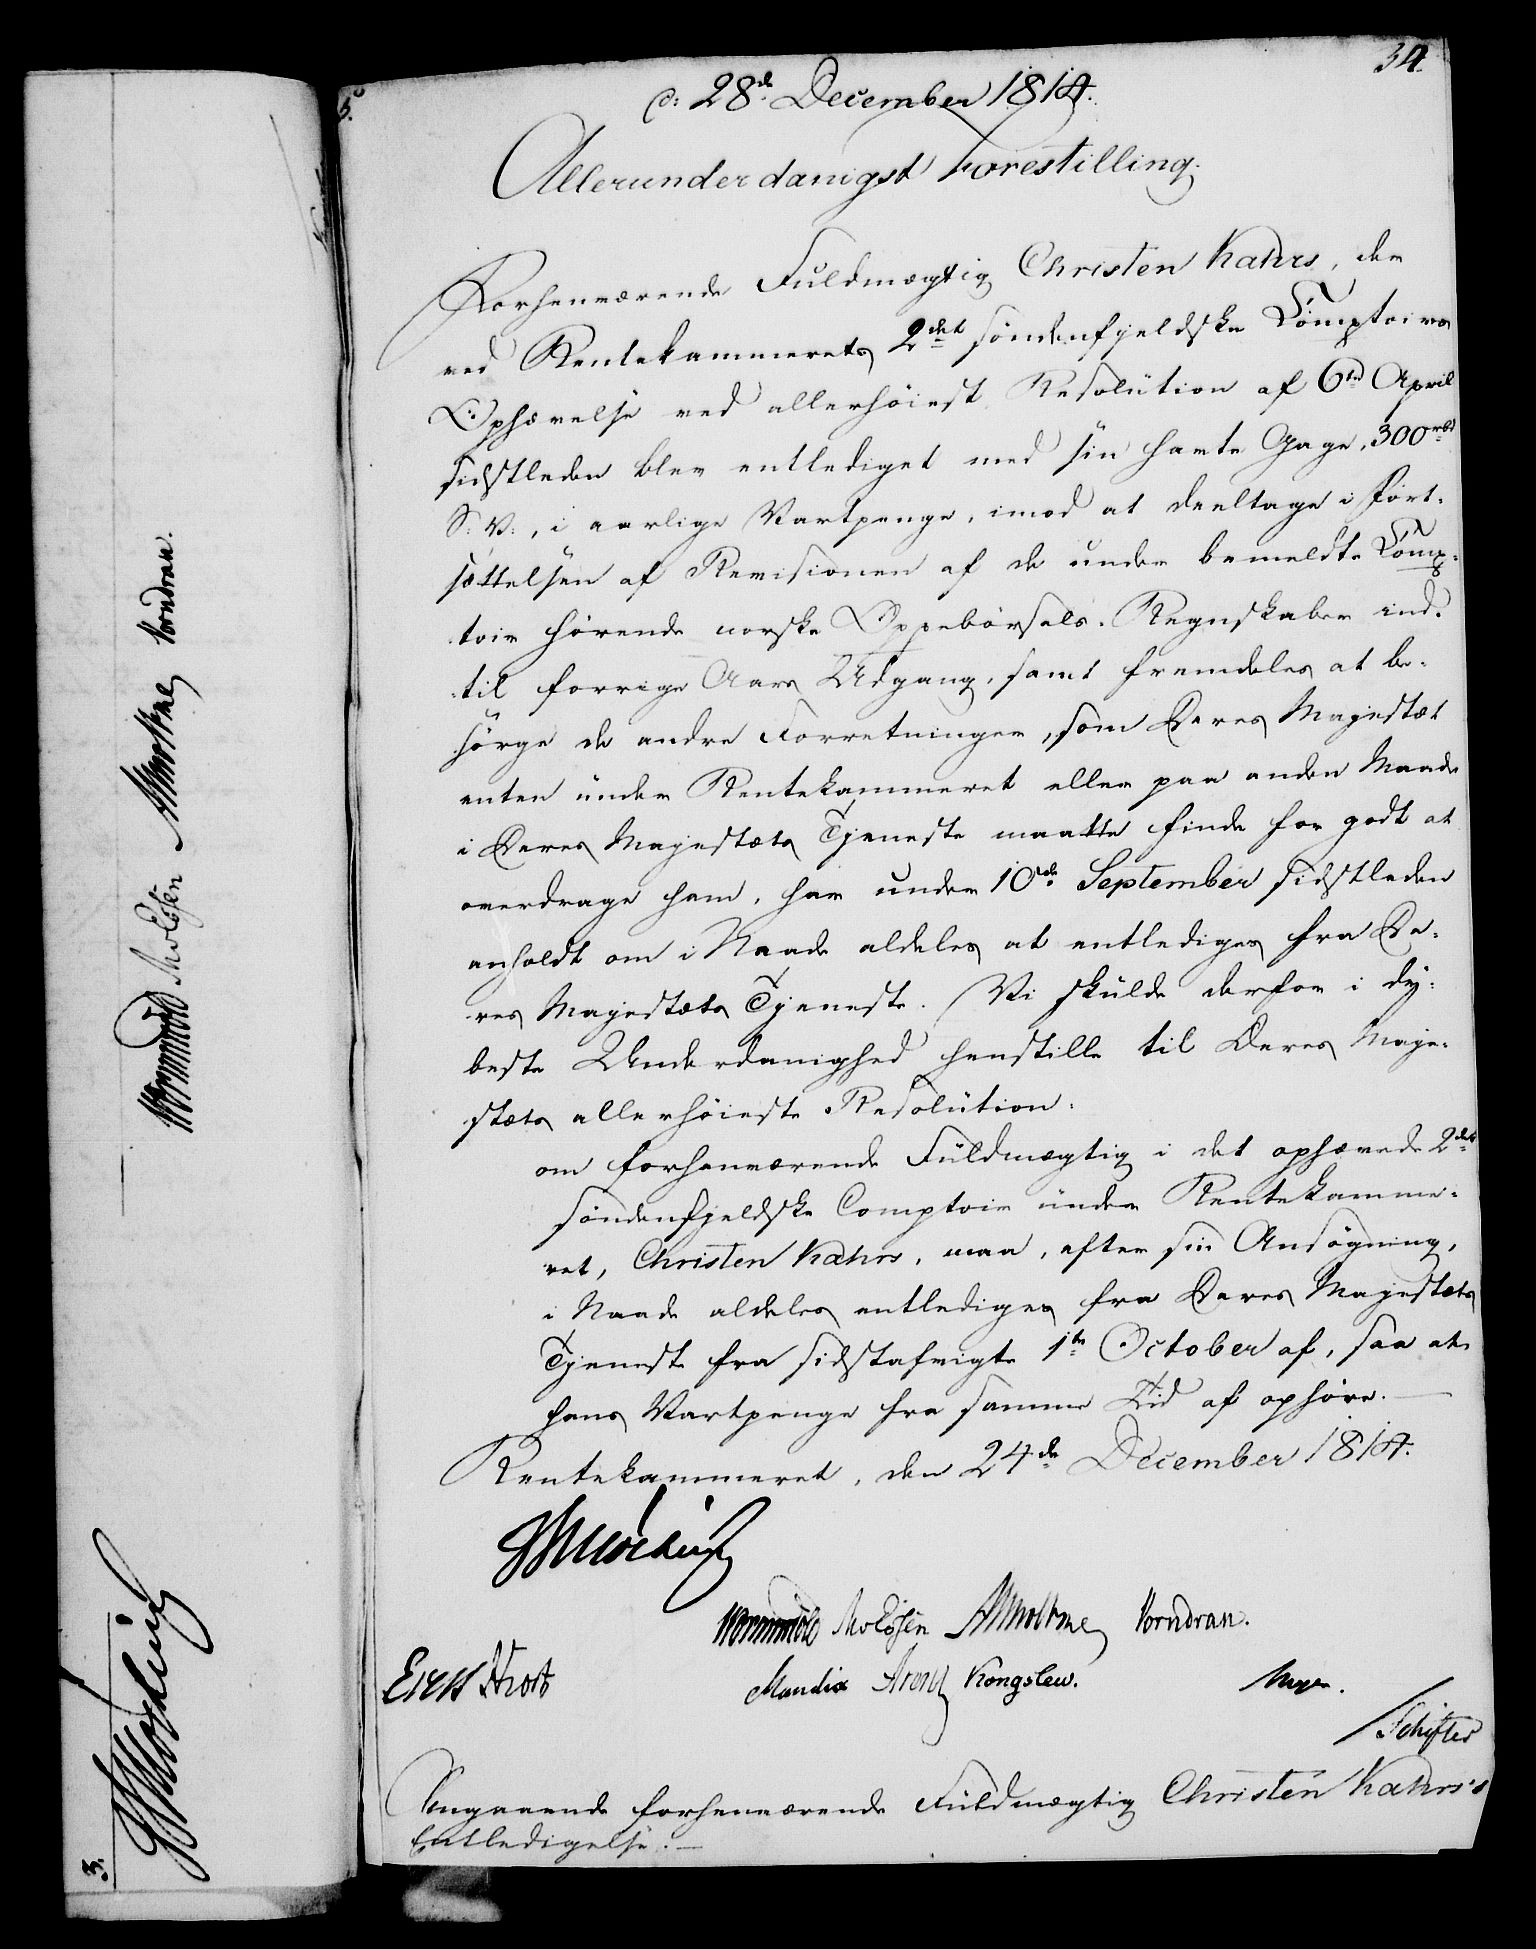 34.
5.
d: 28de December 1814.
Allerunderdanigst Forestilling.
Forhenværende Fuldmægtig Christen Kahrs, der
ved Rentekammerets 2det søndenfjeldske Comptoirs
Ophævelse ved allerhøiest Resolution af 6te April
sidstleden blev entlediget med sin havte Gage, 300 rbd
S: V:, i aarlige Vartpenge, imod at deeltage i Fort-
sættelsen af Revisionen af de under bemeldte Comp-
toir hørende norske Oppebørsels-Regnskaber ind-
til forrige Aars Udgang, samt fremdeles at be-
sørge de andre Forretninger, som Deres Majestæt
enten under Rentekammeret eller paa anden Maade
i Deres Majestæts Tjeneste maatte finde for godt at
overdrage ham, har under 10de September sidstleden
anholdt om i Naade aldeles at entlediges fra De-
res Majestæts Tjeneste. Vi skulde derfor i dy-
beste Underdanighed henstille til Deres Maje-
stæts allerhøieste Resolution:
om forhenværende Fuldmægtig i det ophævede 2det
søndenfjeldske Comptoir under Rentekamme-
ret, Christen Kahrs, maa, efter sin Ansøgning,
i Naade aldeles entlediges fra Deres Majestæts
Tjeneste fra sidstafvigte 1te October af, saa at
hans Vartpenge fra samme Tid af ophøre.
Rentekammeret, den 24de December 1814.
JSMösting
Wormskiold Moldsen AMoltke Vorndran.
Mandix Kongslew. Meyer.
Schifter
Angaaende forhenværende Fuldmægtig Christen Kahrs's
Entledigelse.
3.
JSMösting
Wormskiold Moldsen AMoltke Vorndran.